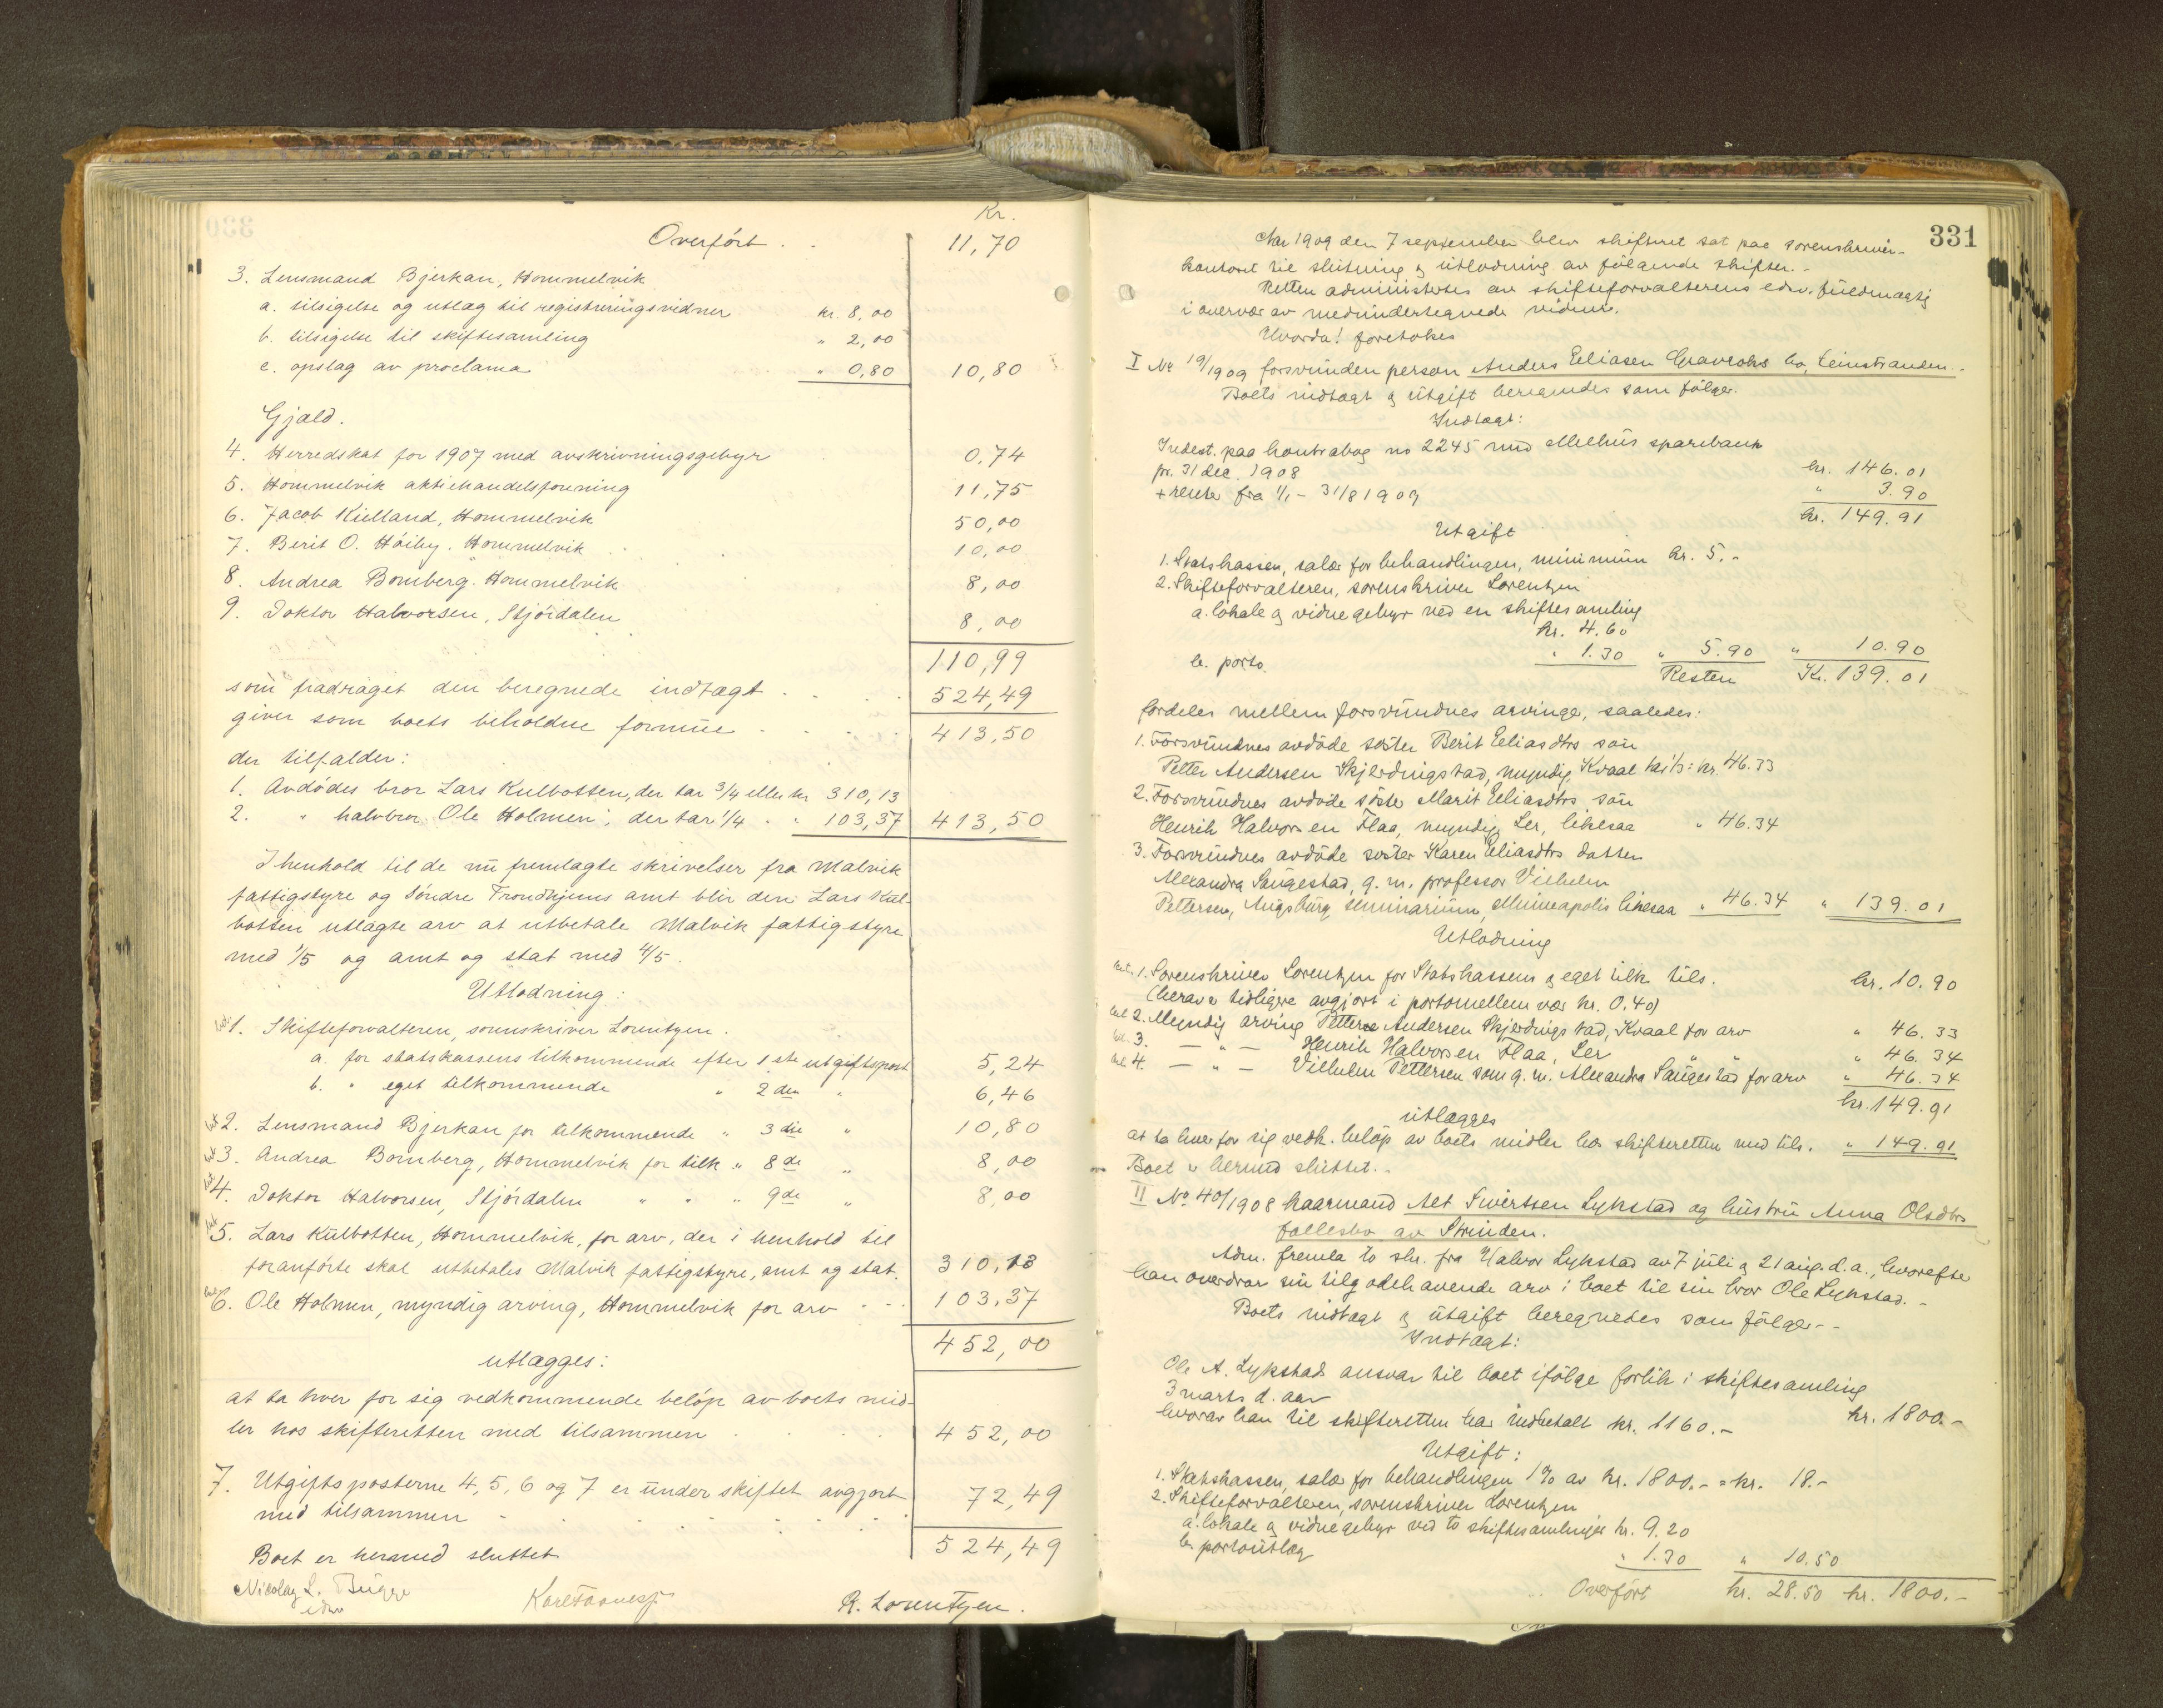 Kr.
Overført . . 11,70
3. Lensmand Bjerkan, Hommelvik
a. tilsigelse og utlæg til registreringsvidner kr. 8,00
b. tilsigelse til skiftesamling " 2,00
c. opslag av proclama " 0,80 10,80
Gjæld.
4. Herredskat for 1907 med avskrivningsgebyr 0,74
5. Hommelvik aktiehandelsforening 11,75
6. Jacob Kielland, Hommelvik 50,00
7. Berit O. Høiby. Hommelvik 10,00
8. Andrea Bomberg. Hommelvik 8,00
9. Doktor Halvorsen, Stjørdalen 8,00
110,99
som fradraget den beregnede indtægt . . . 524,49
giver som boets beholdne formue . . . . 413,50
der tilfalder:
1. Avdødes bror Lars Kulbotten, der tar 3/4 eller kr 310,13
2. " halvbror Ole Holmen, der tar 1/4 " " 103,37 413,50
I henhold til de nu fremlagte skrivelser fra Malvik
fattigstyre og Søndre Trondhjems amt blir den Lars Kul-
botten utlagte arv at utbetale Malvik fattigstyre
med 1/5 og amt og stat med 4/5.
Utlodning:
1. Skifteforvalteren, sorenskriver Lorentzen.
a. for statskassens tilkommende efter 1ste utgiftspost 5,24
b. " eget tilkommende " 2den " 6,46
2. Lensmand Bjerkan for tilkommende " 3die " 10,80
3. Andrea Bomberg, Hommelvik for tilk " 8de " 8,00
4. Doktor Halvorsen, Stjørdalen " " " 9de " 8,00
5. Lars Kulbotten, Hommelvik, for arv, der i henhold til
foranførte skal utbetales Malvik fattigstyre, amt og stat. 310,13
6. Ole Holmen, myndig arving, Hommelvik for arv . . . 103,37
452,00
utlægges:
at ta hver for sig vedkommende beløp av boets mid-
ler hos skifteretten med tilsammen . . . 452,00
7. Utgiftsposterne 4, 5, 6 og 7 er under skiftet avgjort
med tilsammen . . . . . . . 72,49
524,49
Boet er hermed sluttet
Nicolay L. Bugge
edsv
R. Lorentzen.
331
Aar 1909 den 7 september blev skifteret sat paa sorenskriver-
kontoret til slutning og utlodning av følgende skifter.-
Retten administrertes av skifteforvalterens edsv. fuldmægtig
i overvær av medundertegnede vidner.
Hvorda! foretokes
I No 19/1909 forsvunden person Anders Eliasen Gravraks bo, Leinstranden.-
Boets indtægt og utgift beregnedes som følger.
Indtægt:
Indest. paa kontrabog no 2245 med Melhus sparebank
pr. 31 dec. 1908 kr. 146.01
+ renter fra 1/1 - 31/8 1909 " 3.90
kr. 149.91
Utgift
1. Statskassen, salær for behandlingen, minimum kr. 5.-
2. Skifteforvalteren, sorenskriver Lorentzen
a. lokale og vidnegebyr ved en skiftesamling
kr. 4.60
b. porto " 1.30 " 5.90 " 10.90
Resten Kr. 139.01
fordeles mellem forsvundnes arvinger, saaledes:
1. Forsvundnes avdøde søster Berit Eliasdtrs søn
Petter Andersen Skjerdingstad, myndig, Kvaal har 1/3 = kr. 46.33
2. Forsvundnes avdøde søster Marit Eliasdtrs søn
Henrik Halvorsen Flaa, myndig, Ler, likesaa " 46.34
3. Forsvundnes avdøde søster Karen Eliasdtrs datter
Alexandra Saugestad, g. m. professor Vilhelm
Pettersen, Augsburg seminarium, Minneapolis likesaa " 46.34 " 139.01
Utlodning
1. Sorenskriver Lorentzen for Statskassens og eget tilk. tils. kr. 10.90
(herav er tidligere avgjort i portomellemvær kr. 0.40)
2. Myndig arving Petter Andersen Skjerdingstad, Kvaal for arv " 46.33
3. - " - Henrik Halvorsen Flaa, Ler " " " 46.34
4. - " - Vilhelm Pettersen som g. m. Alexandra Saugestad for arv " 46.34
kr. 149.91
utlægges
at ta hver for sig vedk. beløp av boets midler hos skifteretten med tils. " 149.91
Boet er hermed sluttet.-
II No 40/1908 kaarmand Alet Sivertsen Lykstad og hustru Anna Olsdtrs
fællesbo av Strinden.
Adm. fremla to skr. fra Halvor Lykstad av 7 juli og 21 aug. d. a., hvorefter
han overdrar sin tilgodehavende arv i boet til sin bror Ole Lykstad.-
Boets indtægt og utgift beregnedes som følger.-
Indtægt:
Ole A. Lykstads ansvar til boet ifølge forlik i skiftesamling
3 marts d. aar kr. 1800.-
hvorav han til skifteretten har indbetalt kr. 1160.-
Utgift:
1. Statskassen, salær for behandlingen 1% av kr. 1800.- = kr. 18.-
2. Skifteforvalteren, sorenskriver Lorentzen
a. lokale og vidnegebyr ved to skiftesamlinger kr. 9.20
b. portoutlæg " 1.30 " 10.50
Overført kr. 28.50 kr. 1800.-